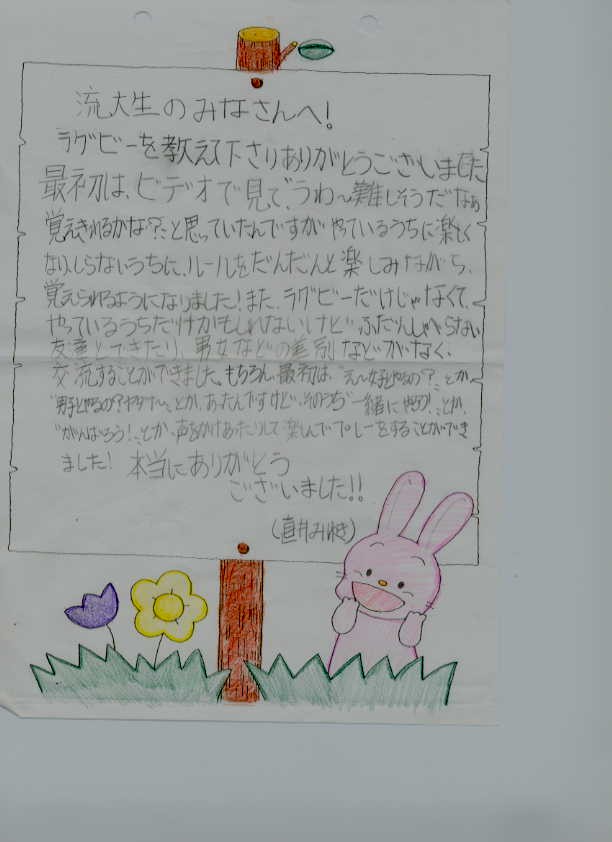 流大生のみなさんへ!
ラグビーを教えて下さりありがとうございました
最初は、ビデオで見て、うわ〜難しそうだなぁ
覚えきれるかな?と思っていたんですが やっているうちに楽しく
ない、しらないうちに、ルールをだんだんと楽しみながら、
覚えられるようになりました!また、ラグビーだけじゃなくて、
やっているうちだけかもしれないけど ふだんしゃべらない
友達とできたり、男女などの差別などがなく、
交流することができました。もちろん、最初は、"え〜女子とやるの?"とか
"男子とやるの?ヤダナ〜"とか、あったんですけど、そのうち"一緒にやろう!"とか、
"がんばろう!"とか、声をかけあったりして楽しんでプレーをすることができ
ました! 本当にありがとう
ございました!!